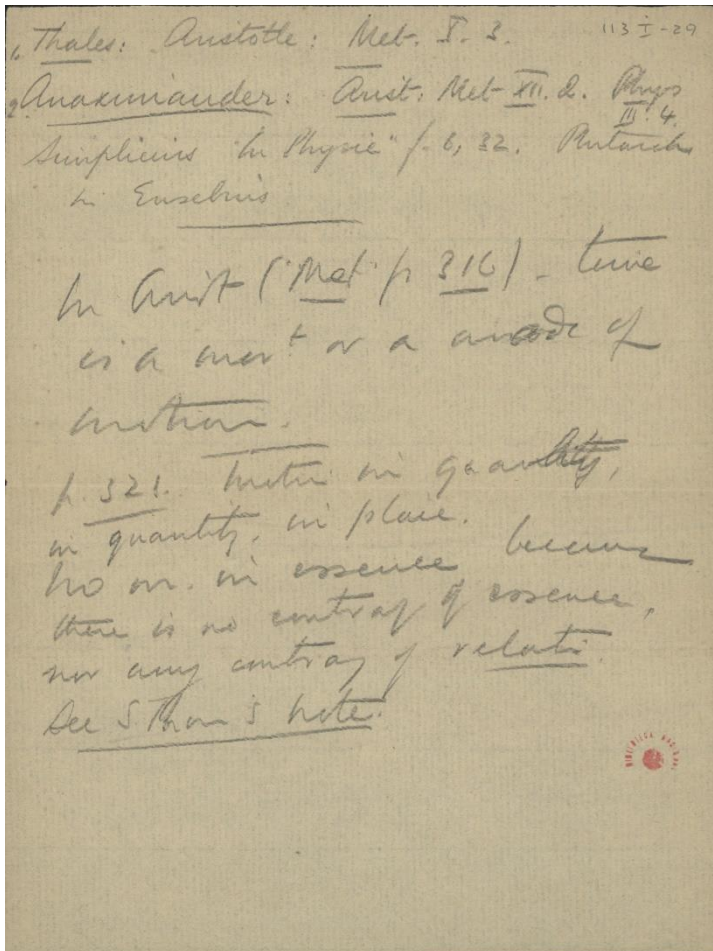 113 I-29
1. Thales: Aristotle: Met. I. 3.
2. Anaximander: Arist: Met XII. 2. Phys
III. 4.
Simplicius "In Physic" f. 6, 32. Plutarch
in Eusebius
In Arist ("Met" p 316) - time
is a mov.t or a mode of
motion.
p. 321. Motion in quality,
in quantity, in place.
No m. in essence because
there is no contrary of essence,
nor any contrary of relati.
See S Thom's note.
BIBLIOTECA NACIONAL